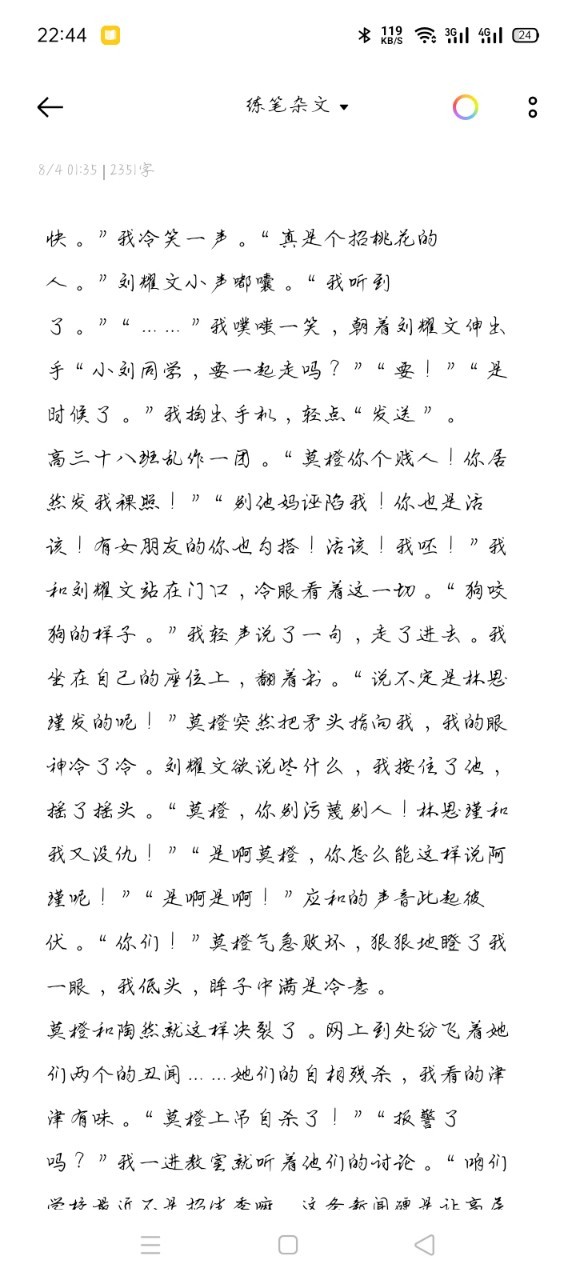 22:44
119 KB/S 3G 4G 24
练笔杂文
8/4 01:35 | 2351字
快。”我冷笑一声。“真是个招桃花的
人。”刘耀文小声嘟囔。“我听到
了。”“……”我噗嗤一笑,朝着刘耀文伸出
手“小刘同学,要一起走吗?”“要!”“是
时候了。”我掏出手机,轻点“发送”。
高三十八班乱作一团。“莫橙你个贱人!你居
然发我裸照!”“别他妈诬陷我!你也是活
该!有女朋友的你也勾搭!活该!我呸!”我
和刘耀文站在门口,冷眼看着这一切。“狗咬
狗的样子。”我轻声说了一句,走了进去。我
坐在自己的座位上,翻着书。“说不定是林思
瑾发的呢!”莫橙突然把矛头指向我,我的眼
神冷了冷。刘耀文欲说些什么,我按住了他,
摇了摇头。“莫橙,你别污蔑别人!林思瑾和
我又没仇!”“是啊莫橙,你怎么能这样说阿
瑾呢!”“是啊是啊!”应和的声音此起彼
伏。“你们!”莫橙气急败坏,狠狠地瞪了我
一眼,我低头,眸子中满是冷意。
莫橙和陶然就这样决裂了。网上到处纷飞着她
们两个的丑闻……她们的自相残杀,我看的津
津有味。“莫橙上吊自杀了!”“报警了
吗?”我一进教室就听着他们的讨论。“咱们
学校最近不是招优秀嘛,这条新闻硬是让高层